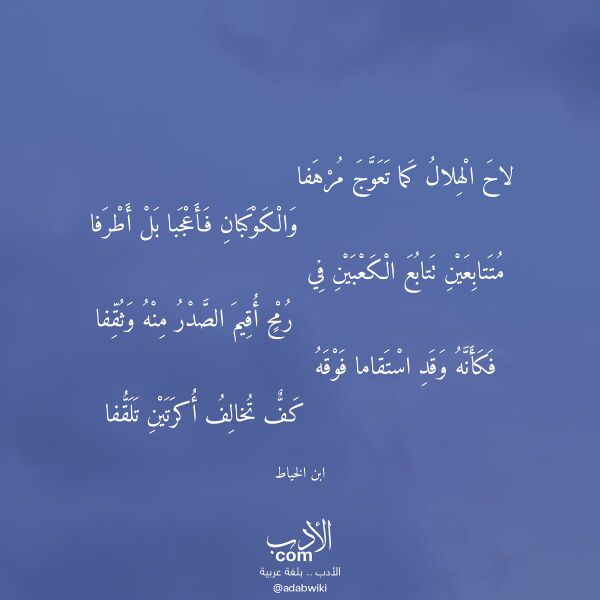 لاحَ الْهِلالُ كَما تَعَوَّجَ مُرْهَفا
وَالْكَوْكَبانِ فَأَعْجَبا بَلْ أَطْرَفا
مُتَتابِعَيْنِ تَتابُعَ الْكَعْبَيْنِ فِي
رُمْحٍ أُقِيمَ الصَّدْرُ مِنْهُ وَثُقِّفا
فَكَأَنَّهُ وَقَدِ اسْتَقاما فَوْقَهُ
كَفٌّ تُخالِفُ أُكرَتَيْنِ تَلَقُّفا
ابن الخياط
الأدب
com
الأدب .. بلغة عربية
@adabwiki